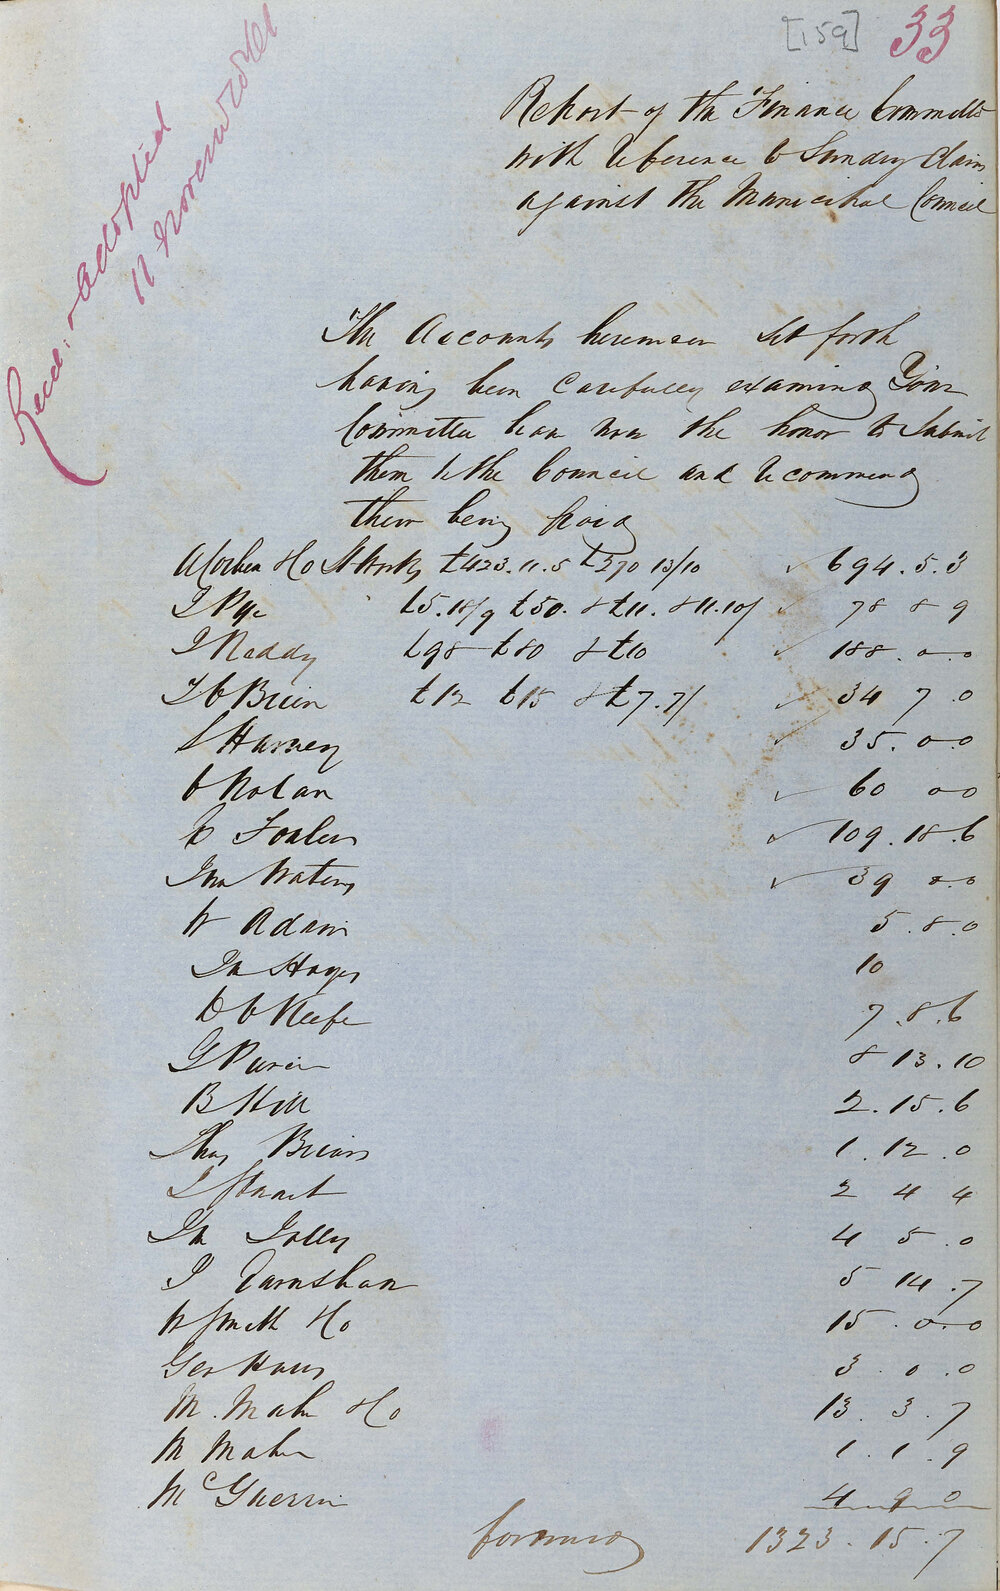 [159] 33
Report of the Finance Committee
with reference to Sundry Claims
against the Municipal Council
Recd. & adopted
11 November
The Accounts hereunder set forth
having been Carefully examined Your
Committee have now the honor to Submit
them to the Council and recommend
their being paid
& Co St Works £423.11.5 £270 13/10 694.5.3
J Pye £5.18/9 £50. & £11. & 11.10/ 78 8 9
J Roddy £98 £80 & £10 188.0.0
T O Brien £12 £15 & £7.7/ 34 7.0
S Harney 35.0.0
O Nolan 60 0 0
109.18.6
Jno Waters 39 0.0
W Adam 5.8.0
Jn Hayes 10
D O Keefe 7.8.6
G 8 13.10
B Hill 2.15.6
Thos 1.12.0
J Stuart 2 4 4
Jn Jolly 4 5.0
J Earnshaw 5 14.7
W Smith & Co 15.0.0
Geo 3.0.0
M. Maher & Co 13.3.7
M Maher 1.1.9
McGuerrin 4 9 0
forward 1323.15.7